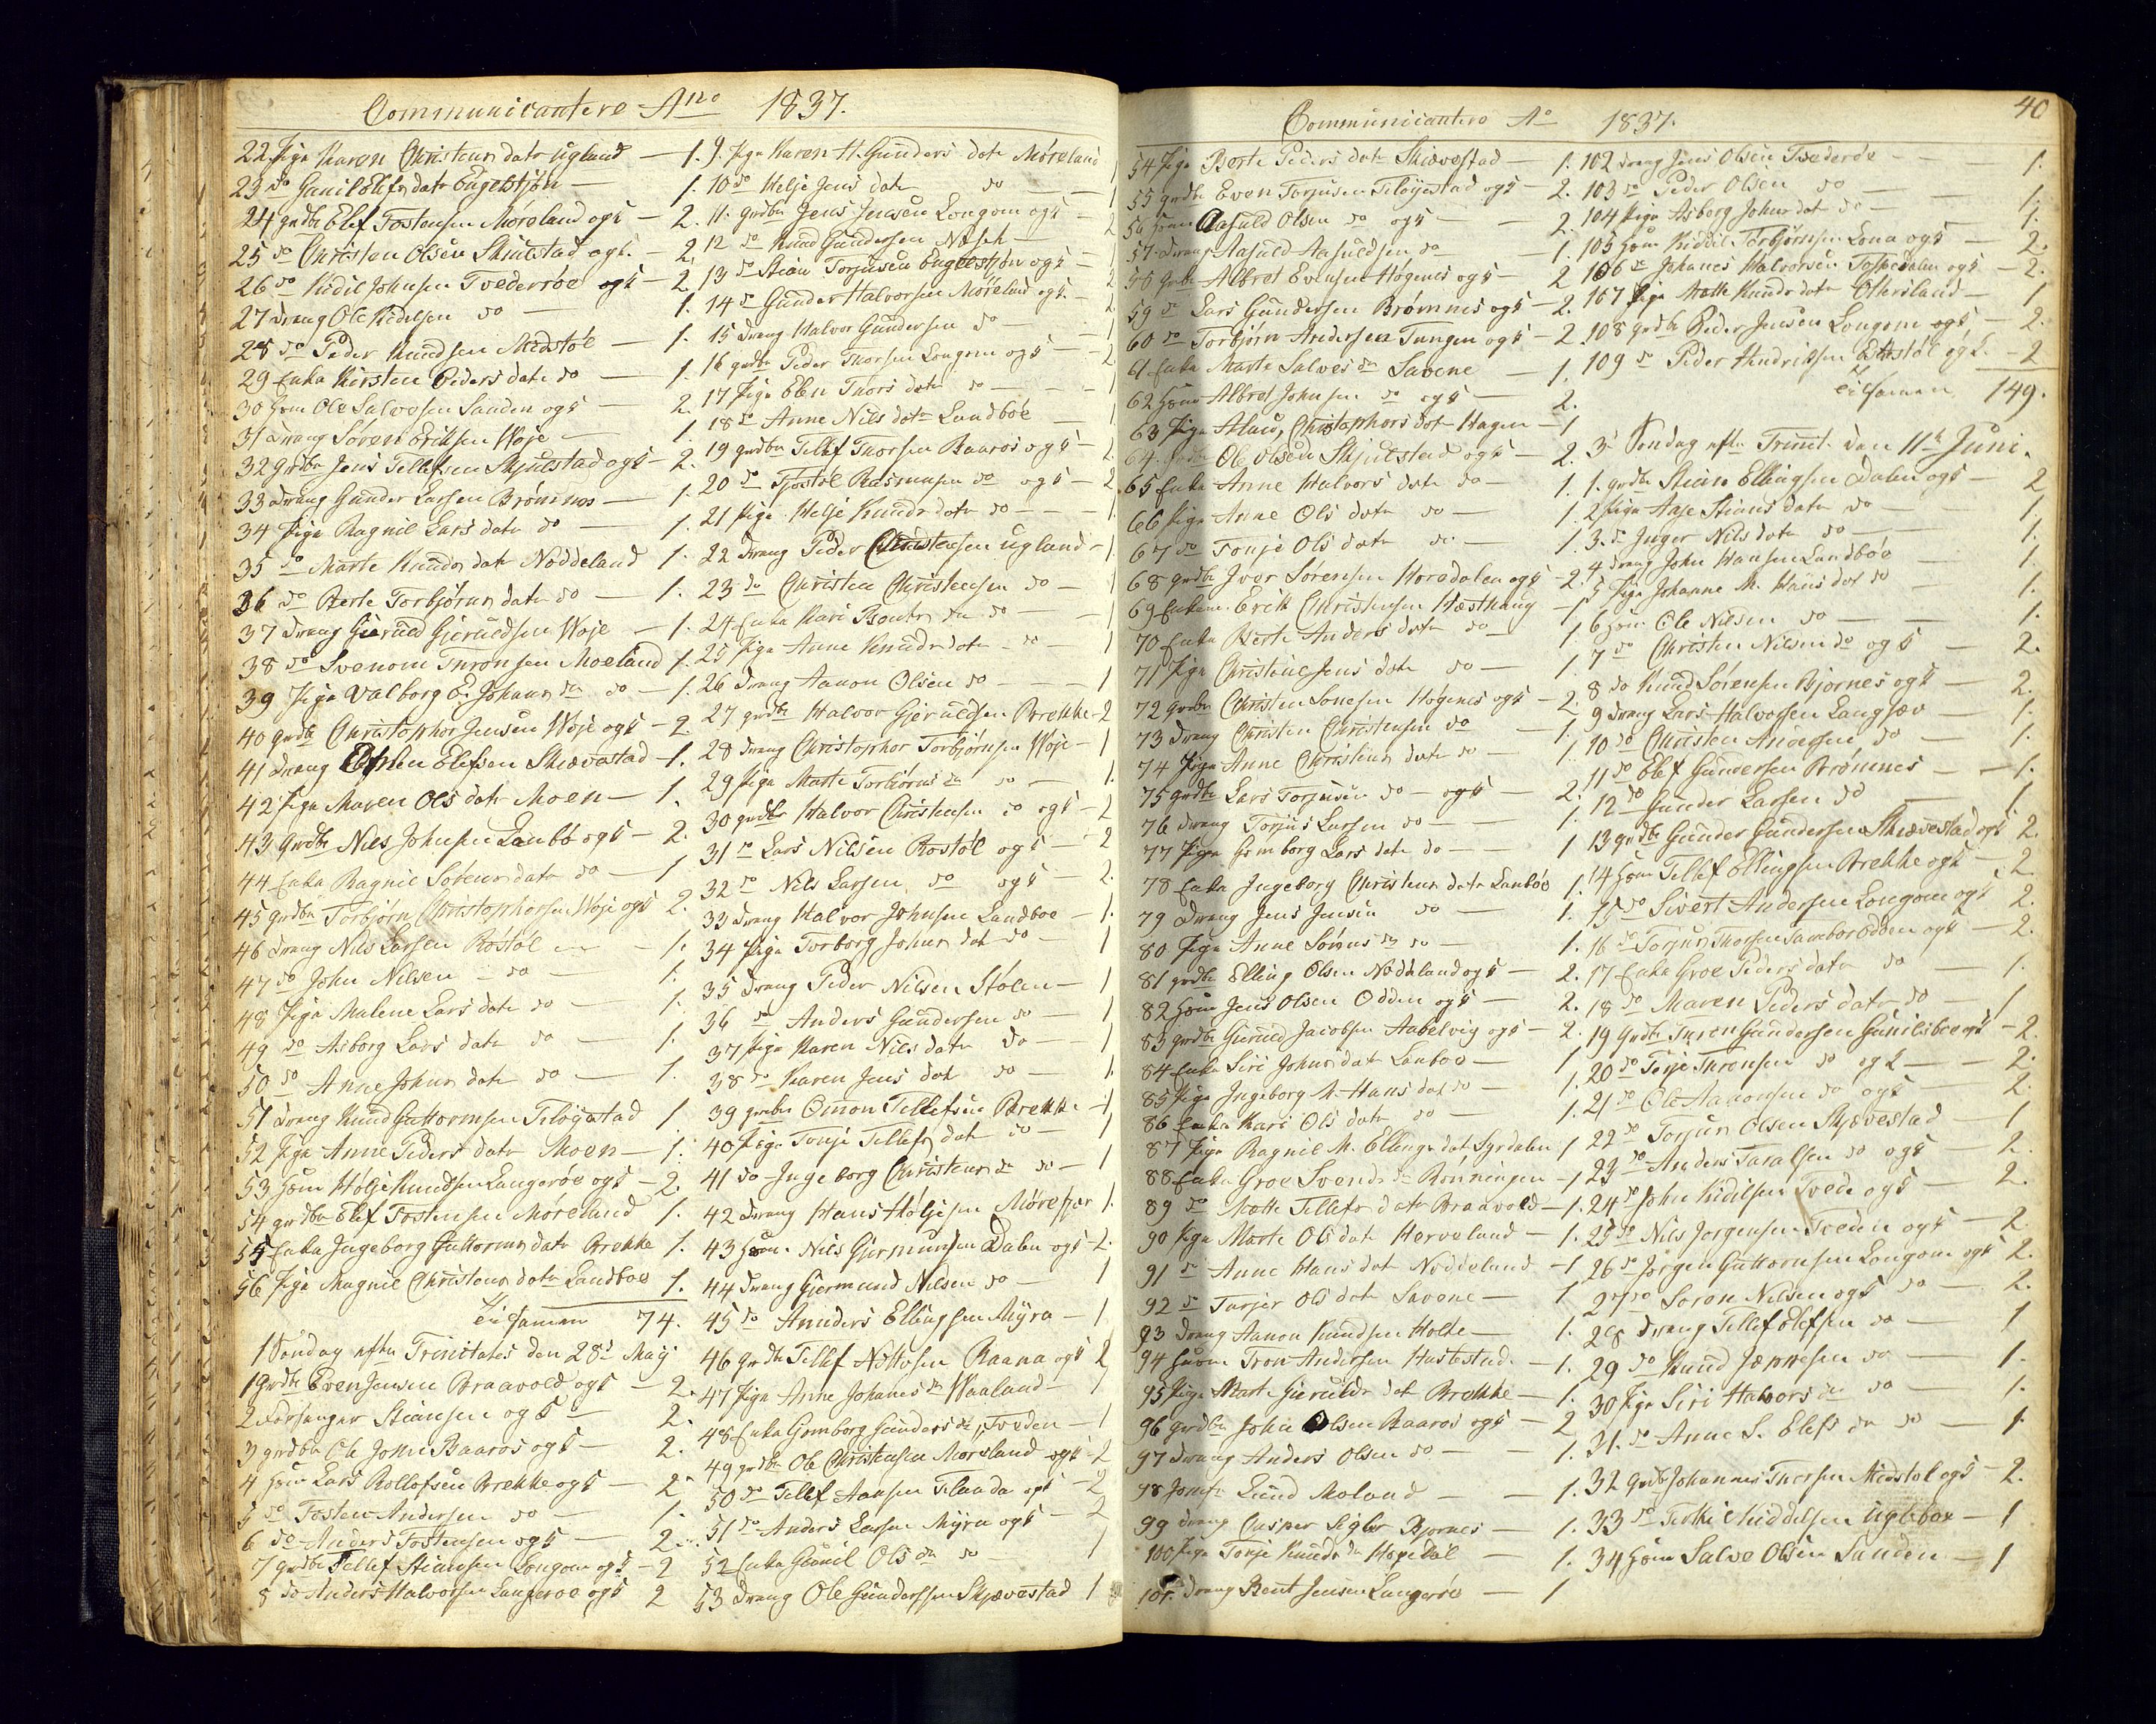 Communicantere Ano 1837.
22 Pige Karen Christens datr Ugland — 1.
23 do Gunil Elefs datr Engelstjøn — 1.
24 grdbr Elef Tostensen Møreland ogh — 2.
25 do Christen Olsen Skiulstad ogh. — 2.
26 do Kidil Johnsen Tvederøe ogh — 2
27 Dreng Ole Kidelsen do — 1.
28 do Peder Knudsen Midstøl — 1.
29 Enka Kirsten Peders datr do — 1.
30 Huum Ole Salvesen Sanden ogh — 2.
31 Dreng Søren Eriksen Woje — 1.
32 Grdbr Jens Tellefsen Skjulstad ogh — 2.
33 Dreng Gunder Larsen Brømnes — 1.
34 Pige Ragnil Lars datr do — 1.
35 do Marte Knuds datr Noddeland 1.
36 do Berte Torbjørns datr do — 1.
37 Dreng Gieruld Gieruldsen Woje — 1.
38 do Svenom Tronsen Moeland 1.
39 Pige Valborg E. Johans dr do — 1.
40 grdbr Christopher Jensen Woje ogh — 2.
41 Dreng Elefsen Skiævestad — 1.
42 Pige Maren Ols datr Moen — 1.
43 Grdbr Nils Johnsen Lanbo ogh — 2.
44 Enka Ragnil Sørens datr do — 1
45 grdbr Torbjørn Christophersen Woje ogh 2.
46 Dreng Nils Larsen Rostøl — 1.
47 do John Nilsen — do — 1.
48 Pige Malene Lars datr do — 1.
49 do Asborg Lars datr do — 1.
50 do Anne Johns datr do — 1.
51 Dreng Knud Guttormsen Fløystad 1.
52 Pige Anne Peders datr Moen — 1.
53 Huum Hølje Knudsen Langerøe ogh — 2.
54 grdbr Elef Tostensen Møreland 1.
55 Enka Ingeborg Guttorms datr Brekke 1.
56 Pige Magnil Christens datr Landboe 1.
Tilsamen 74.
1 Søndag efter Trinitatis den 28d May
1 Grdbr Even Jensen Braavold ogh — 2.
2 Forsanger Stiansen ogh — 2.
3 grdbr Ole John Baaros ogh — 2.
4 Huum Lars Rollefsen Brekke ogh — 2
5 do Tosten Andersen do — 1.
6 do Anders Tostensen ogh — 2.
7 grdbr Tellef Stiansen Longom ogh — 2
8 do Anders Halvorsen Langeroe ogh 2
9. Pige Karen H. Gunders datr Møreland 1
10 do Helje Jens datr do — 1
11. grdbr Jens Jensen Longom ogh — 2
12 do Knud Gundersen Næseh — 1
13 do Stian Torjusen Engelstjøn ogh — 2
14 do Gunder Halvorsen Møreland ogh — 2
15 Dreng Halvor Gundersen do — 1
16 grdbr Peder Thorsen Longom ogh — 2
17 Pige Elen Thors datr do — 1
18 do Anne Nils datr Landboe 1
19 grdbr Tellef Thorsen Baaros ogh — 2
20 do Tjostøl Rasmusen do ogh — 2
21 Pige Helje Knuds datr do — 1
22 Dreng Peder Christensen Ugland — 1
23 do Christen Christensen do — 1
24 Enka Kari Bents dr do — 1
25 Pige Anne Knuds datr do — 1
26 Dreng Aanon Olsen do — 1
27 grdbr Halvor Gieruldsen Brekke — 2
28 Dreng Christopher Torbjørnsen Woje — 1
29 Pige Marte Torbiørns dr do — 1.
30 grdbr Halvor Christensen do ogh — 2
31 do Lars Nilsen Rostøl ogh — 2
32 do Nils Larsen do ogh — 2.
33 Dreng Halvor Johnsen Landboe — 1.
34 Pige Torborg Johns dat do — 1
35 Dreng Peder Nilsen Stølen — 1
36 do Anders Gundersen do — 1
37 Pige Karen Nils datr do — 1
38 do Karen Jens dat do — 1.
39 grdbr Omon Tellefsen Brekke — 1
40 Pige Tonje Tellefs dat do — 1
41 do Ingeborg Christens dr do — 1
42 Dreng Hans Høljesen Mørefjær 1.
43 Huum. Nils Gjermunsen Dalen ogh — 2.
44 Dreng Gjermund Nilsen do — 1
45 do Annders Ellingsen Myra — 1
46 grdbr Tellef Nottosen Raana ogh 2
47 Pige Anne Johanes dr Waaland — 1
48 Enka Gomborg Gunders dr Tveden — 1
49 grdbr Ole Christensen Moreland ogh — 2
50 do Tellef Aansen ogh — 2
51 do Anders Larsen Myra ogh — 2
52 Enka Gunil Ols dr do 1
53 Dreng Ole Gundersen Skjævestad 1
40
Communicantere Ao 1837.
54 Pige Berte Peders datr Skiævestad — 1.
55 grdbr Even Torjusen Fløyestad ogh — 2.
56 Huum Aasuld Olsen do ogh — 2.
57 Dreng Aasuld Aasuldsen do 1.
58 Grdbr Albret Evensen Høgenes ogh — 2
59 do Lars Gundersen Brømnes ogh — 2.
60 do Torbjørn Andersen Tangen ogh — 2.
61 Enka Marte Salves dr Savene — 1.
62 Huum Albret Johnsen do ogh — 2.
63 Pige Christophers dat Hagen — 1
64. grdbr Ole Olsen Skjulstad ogh — 2.
65 Enka Anne Halvors datr do — 1.
66 Pige Anne Ols datr do — 1.
67 do Tonje Ols datr do — 1
68 grdbr Iver Sørensen Hovedalen ogh — 2.
69 Enkem. Erik Christensen Hæsthaug — 1
70 Enka Berte Anders datr do — 1
71 Pige Christene Jens datr do — 1.
72 Grdbr Christen Høgenes ogh — 2.
73 Dreng Christen Christensen do 1.
74 Pige Anne Christens datr do — 1.
75 grdbr Lars Torjusen do — ogh — 2.
76 Dreng Torjus Larsen do — 1.
77 Pige Gomborg Lars datr do — 1
78 Enka Ingeborg Christens datr Lanboe 1.
79 Dreng Jens Jensen do — 1.
80 Pige Anne Sørens dr do — 1.
81 grdbr Elling Olsen Noddeland ogh — 2.
82 Huum Jens Olsen Odden ogh — 2.
83 grdbr Gieruld Jacobsen Aabelvig ogh — 2.
84 Enka Siri Johns dat Lanboe — 1
85 Pige Ingeborg M. Hans dat do — 1.
86 Enka Kari Ols datr do — 1.
87 Pige Ragnil M. Ellings dat Syrdalen 1
88 Enka Groe Svends dr Rønningen — 1
89 do Mette Tellefs datr Braavold — 1.
90 Pige Marte Ols datr Herveland — 1.
91 do Anne Hans dat Noddeland — 1
92 do Torjer Ols dat Savene — 1
93 Dreng Aanon Knudsen Holte — 1.
94 Huum Tron Andersen Hustestad. — 1.
95 Pige Marte Gierulds dat Brekke — 1.
96 grdbr John Olsen Baaros ogh — 2
97 Dreng Anders Olsen do — 1.
98 Jomfr Lund Moland — 1.
99 Dreng Casper Sigler Bjornes — 1.
100 Pige Tonje Knuds dr Hopedal — 1.
101. Dreng Bent Jensen Langerøe — 1
102 Dreng Jens Olsen Tvederøe — 1.
103 do Peder Olsen do — 1.
104 Pige Asborg Johns dat do — 1.
105 Huum Kiddil Torbjørnsen Lona ogh — 2.
106 do Johanes Halvorsen ogh — 2.
107 Pige Mette Knuds datr Othersland — 1
108 grdbr Peder Jensen Longom ogh — 2.
109 do Peder Hendriksen ogh. — 2
Tilsamen 149.
3 Søndag efter Trinit. den 11te Juni.
1. grdbr Stian Ellingsen Dalen ogh — 2
2 Pige Aase Stians datr do — 1.
3. do Inger Nils datr do — 1.
4 Dreng John Hansen Landbøe 1.
5 Pige Johanne M. Hans dat do 1.
6 Huum Ole Nilsen do — 1.
7 do Christen Nilsen do ogh — 2.
8 do Knud Sørensen Bjornes ogh — 2.
9 Dreng Lars Halvorsen Langsæv — 1.
10 do Christen Andersen do — 1.
11 do Elef Gundersen Brømnes — 1.
12 do Gunder Larsen do — 1
13 grdbr Gunder Gundersen Skiævestad ogh 2.
14 Huum Tellef Ellingsen Brekke ogh — 2
15 do Sivert Andersen Longom ogh 2.
16 do Torjus Thorsen Sambor Odden ogh — 2.
17 Enka Groe Peders datr do — 1.
18 do Maren Peders datr do — 1
19 Grdbr Tron Gundersen Gunilsboe ogh — 2.
20 do Terje Tronsen do ogh — 2.
21 do Ole Aanonsen do ogh — 2
22 do Torjus Olsen Skjævestad 1
23 do Anders Taralsen do ogh — 2.
24 do John Kidilsen Tvede ogh — 2.
25 do Nils Jorgensen Tveden ogh — 2
26 do Jørgen Guttormsen Longom ogh 2.
27 do Soren Nilsen ogh do — 2.
28 Dreng Tellef Elefsen do — 1
29 do Knud Jæppesen do — 1.
30 Pige Siri Halvors dr do — 1.
31. do Anne S. Elefs dr do — 1
32 Grdbr Johannes Thorsen Midstøl ogh — 2.
33 do Kiddelsen Ugleboe — 1
34 Huum Salve Olsen Sanden — 1